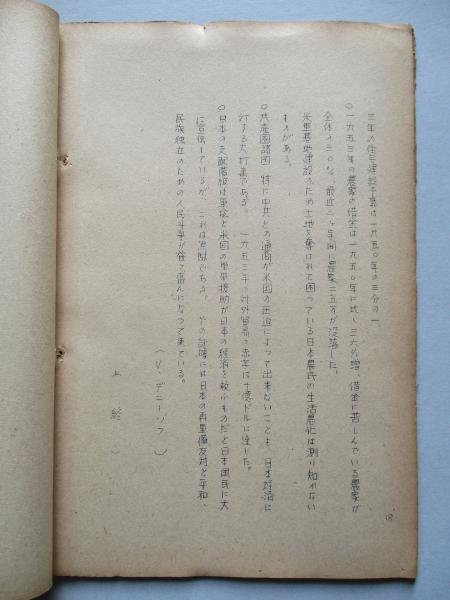 三年の住宅建設予算は一九五〇年の三分の一
〇一九五三年の農家の借金は一九五〇年に比し三六%増、借金に苦しんでいる農家が
全体の三〇%、最近二ヶ年間に農家二五万が没落した。
米軍基地建設のため土地を奪はれて困っている日本農民の生活悪化は測り知れない
ものがある。
〇共産圏諸国、特に中共との通商が米国の圧迫によって出来ないことも、日本経済に
対する大打撃である。一九五三年の対外貿易の赤字は十億ドルに達した。
〇日本の支配階級は軍拡と米国の軍事援助が日本の経済を救ふものだと日本国民に大
に宣伝しているが、これは欺瞞である。その証拠には日本の再軍備反対と平和、
民族独立のための人民斗争が益々盛んになって来ている。
(V、デニーソフ)
(終)
18